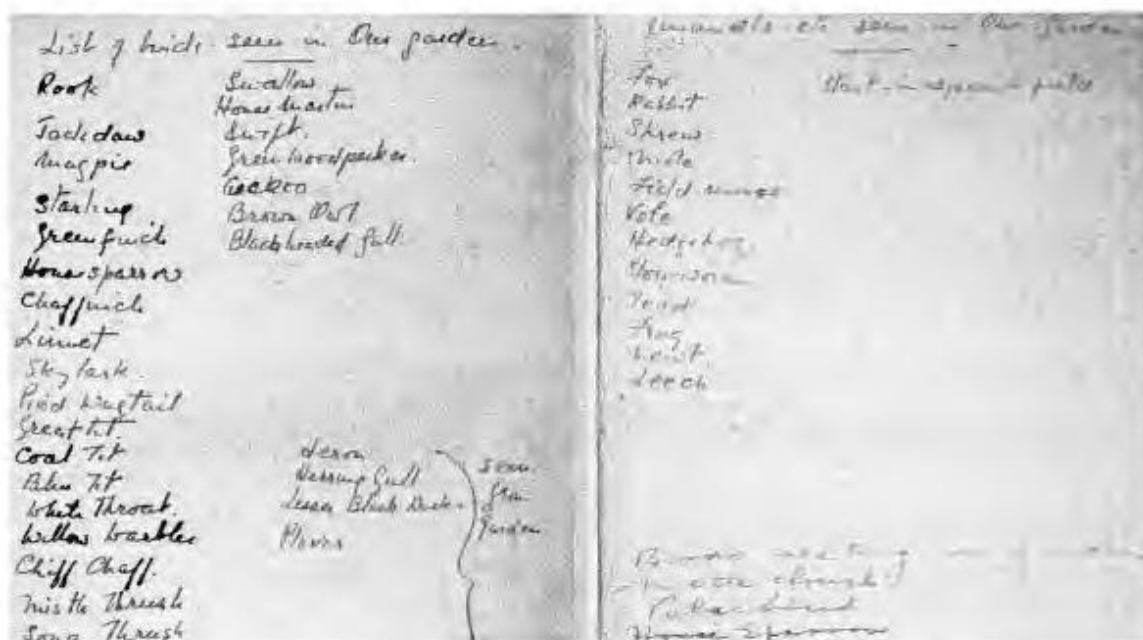 List of birds seen in Our garden.
Rook
Jackdaw
Magpie
Starling
Greenfinch
House sparrow
Chaffinch
Linnet
Skylark
Pied Wagtail
Great tit
Coal Tit
Blue Tit
White Throat.
Willow Warbler
Chiff Chaff.
Mistle Thrush
Song Thrush
Swallow
House Martin
Swift.
Green Woodpecker.
Cuckoo
Brown Owl
Blackheaded Gull
Heron
Herring Gull
Lesser Black
Plover
seen
from
garden
seen in Our Garden
Fox
Rabbit
Shrew
Mole
Field mouse
Vole
Hedgehog
Slow-worm
Toad
Frog
Newt
Leech
Stoat - in
House Sparrow